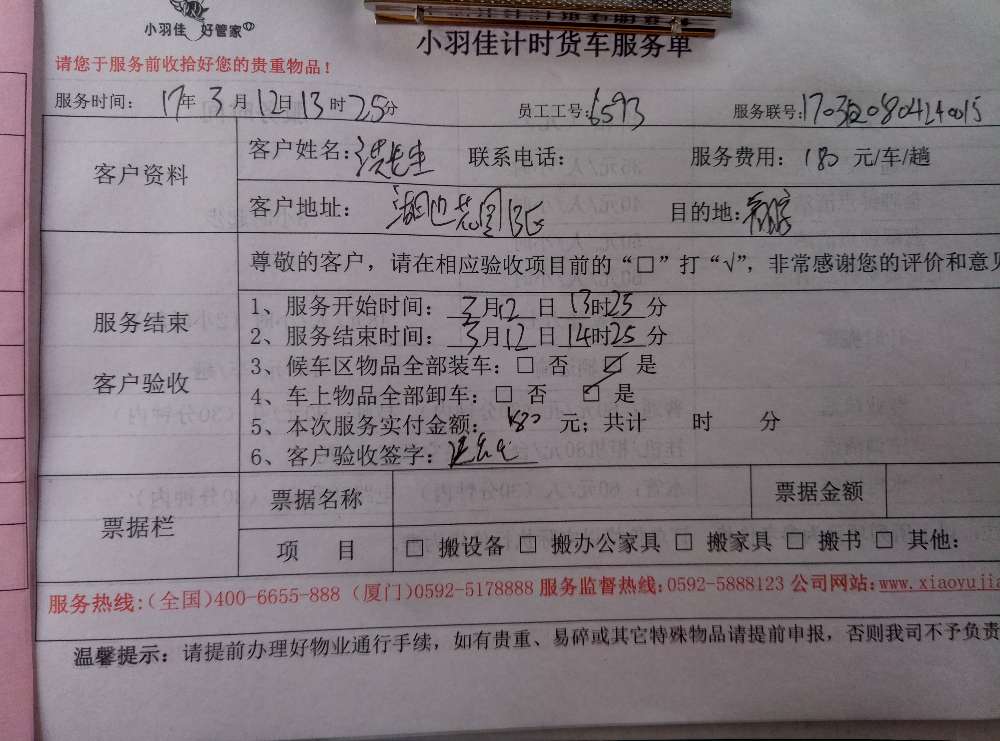 小羽佳 好管家
小羽佳计时货车服务单
请您于服务前收拾好您的贵重物品!
服务时间: 17年3月12日13时25分 员工工号:6593 服务联号:
客户资料
客户姓名:洪先生 联系电话: 服务费用: 180 元/车/趟
客户地址: 湖边花园 目的地:
尊敬的客户，请在相应验收项目前的“□”打“√”，非常感谢您的评价和意见
服务结束
客户验收
1、服务开始时间: 3月12日13时25分
2、服务结束时间: 3月12日14时25分
3、候车区物品全部装车: □ 否 ☑ 是
4、车上物品全部卸车: □ 否 ☑ 是
5、本次服务实付金额: 180 元; 共计 时 分
6、客户验收签字:
票据栏
票据名称 票据金额
项 目 □ 搬设备 □ 搬办公家具 □ 搬家具 □ 搬书 □ 其他:
服务热线:(全国)400-6655-888 (厦门)0592-5178888 服务监督热线:0592-5888123 公司网站:www.xiaoyujia
温馨提示: 请提前办理好物业通行手续，如有贵重、易碎或其它特殊物品请提前申报，否则我司不予负责